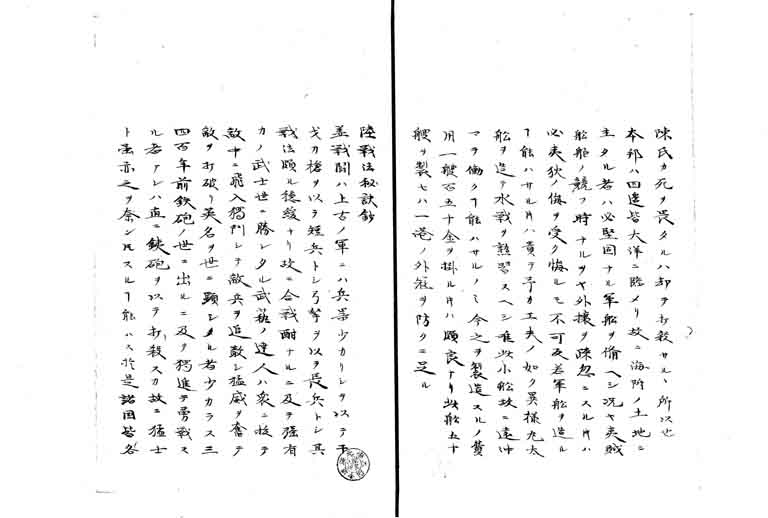 陳氏カ死ヲ畏タルハ却テ打殺サルヽ所以也
本邦ハ四邊皆大洋ニ臨メリ故ニ海所ノ土地ニ
主タル者ハ必堅固ナル軍船ヲ備ヘシ况ヤ夷賊
船舶ノ競フ時ナルヲヤ外援ヲ疎忽ニスル片ハ
必夷狄ノ侮ヲ受ク悔ルモ不可及差軍船ヲ造ル
ヿ能ハサル片ハ責テ予カ工夫ノ如ク異様丸太
船ヲ造テ水戰ヲ熟習スヘシ雖此小船故ニ遠冲
マテ働クヿ能ハサルノミ今之ヲ製造スルノ費
用一艘百五十金ヲ掛ル片ハ頗良ナリ此船五十
艘ヲ製セハ一港ノ外冦ヲ防クニ足ル
陸戰法秘訣鈔
蓋戰鬪ハ上古ノ軍ニハ兵器少カリシヲ以テ干
戈刀槍ヲ以テ短兵トシ弓弩ヲ以テ長兵トシ其
戰法頗ル穏緩ナリ故ニ合戰酣ナルニ及テ强有
力ノ武士世ニ勝レタル武藝ノ達人ハ衆ニ抜テ
敵中ニ飛入獨鬥シテ敵兵ヲ追散シ猛威ヲ奮テ
敵ヲ打破リ英名ヲ世ニ顕シタル者少カラス三
四百年前鉄砲ノ世ニ出ルニ及テ獨進テ勇戰ス
ル者アレハ直ニ鉄砲ヲ以テ打殺スカ故ニ猛士
ト雖亦之ヲ奈ントモスルヿ能ハス於是諸国皆各